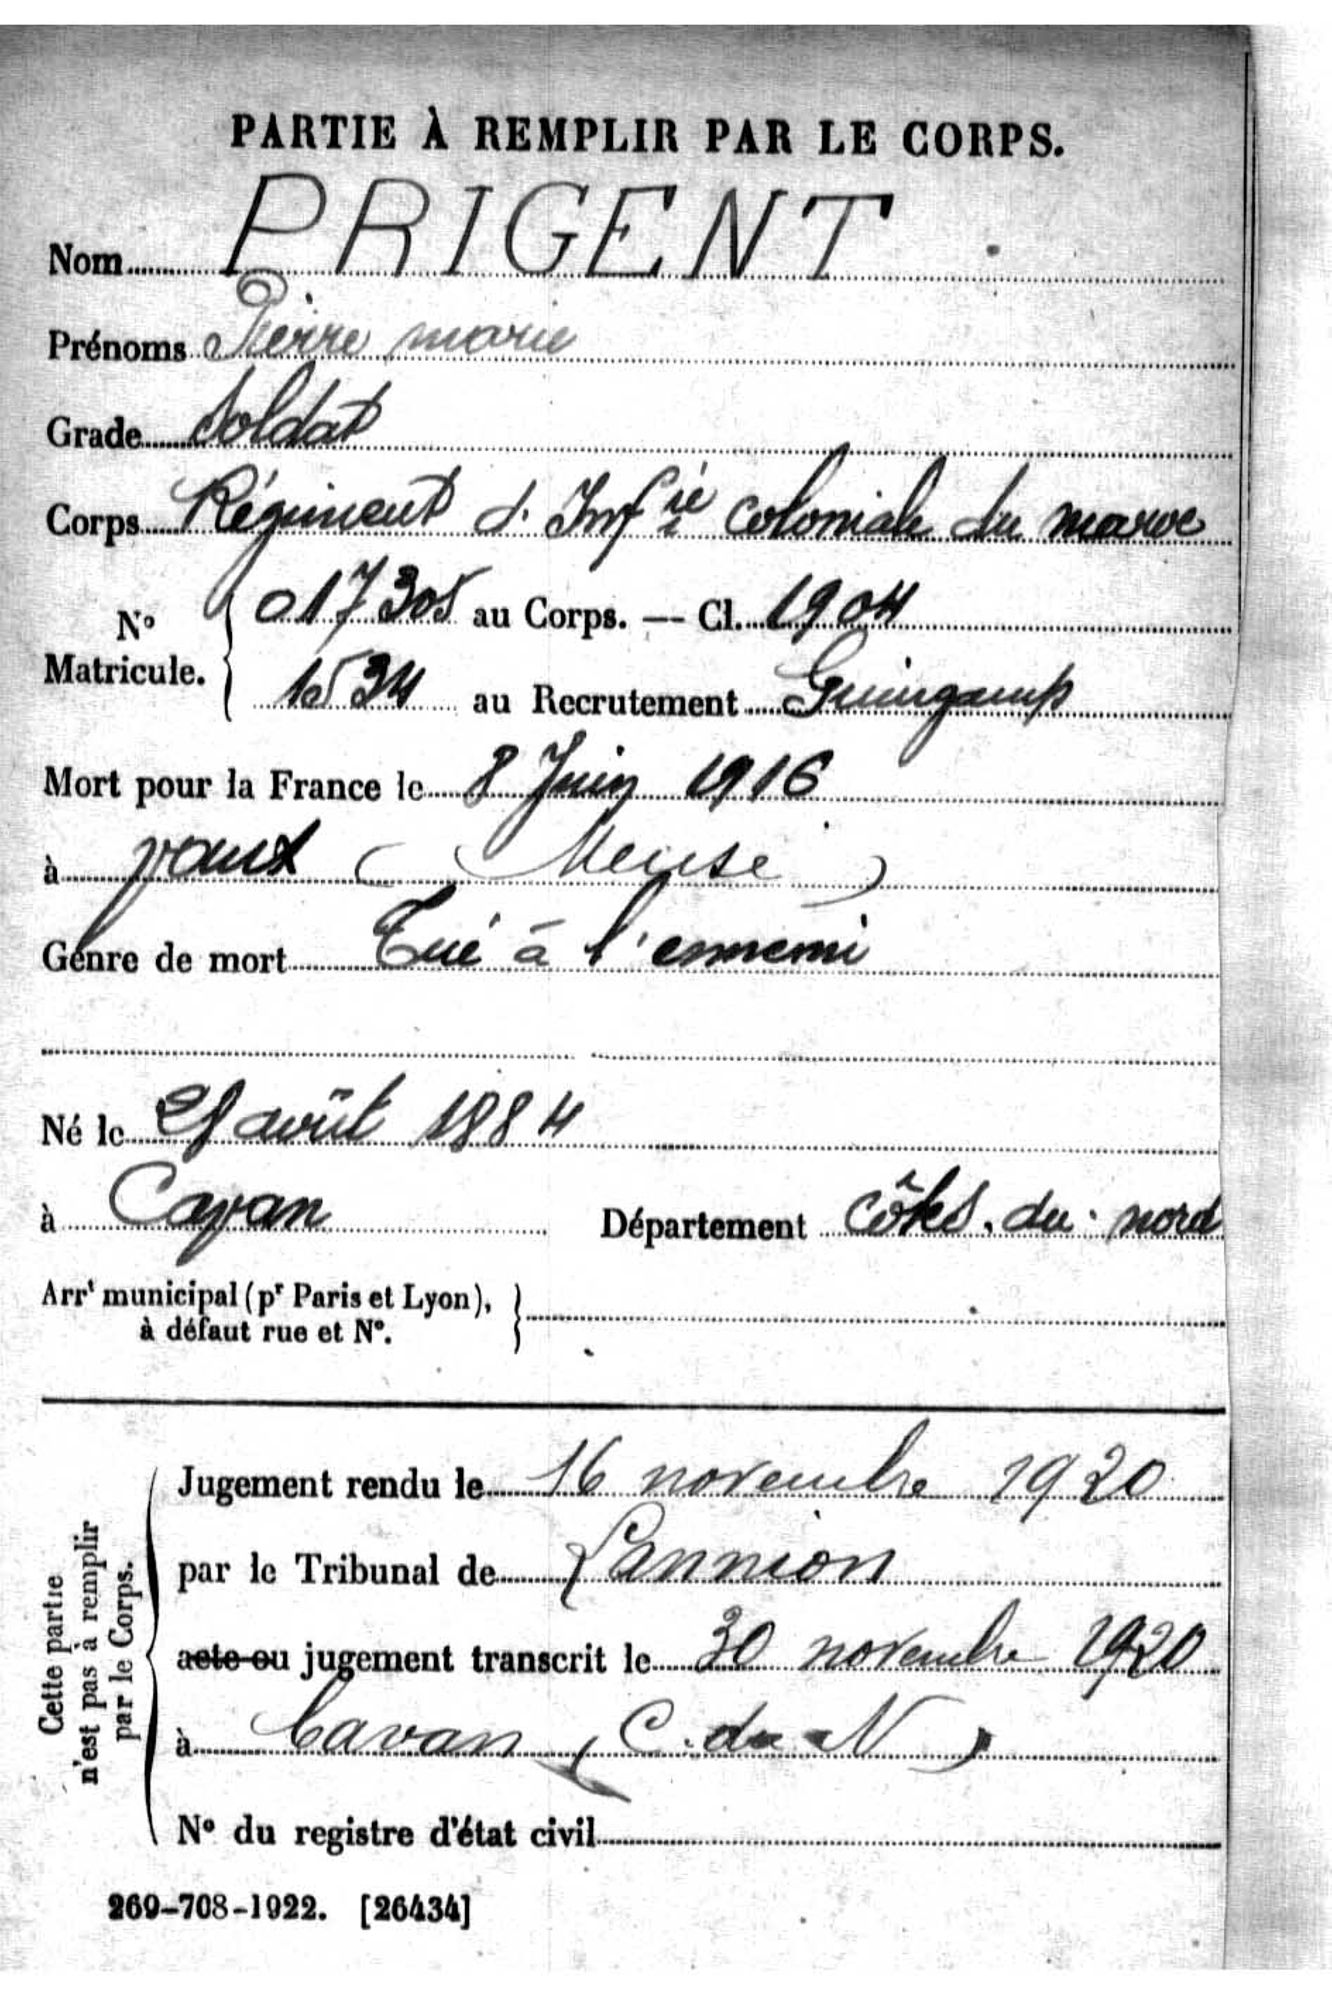 PARTIE À REMPLIR PAR LE CORPS.
Nom PRIGENT
Prénoms Pierre marie
Grade Soldat
Corps Régiment d'Inf^rie coloniale du maroc
N° Matricule. { 017305 au Corps. — Cl. 1904
1534 au Recrutement Guingamp
Mort pour la France le 8 Juin 1916
à vaux (Meuse)
Genre de mort Tué à l'ennemi
Né le août 1884
à Cavan Département Côtes. du. nord
Arr^t municipal (p^r Paris et Lyon), }
à défaut rue et N°.
Cette partie
n'est pas à remplir
par le Corps.
Jugement rendu le 16 novembre 1920
par le Tribunal de Lannion
acte ou jugement transcrit le 30 novembre 1920
à Cavan (C. du N)
N° du registre d'état civil
269-708-1922. [26434]